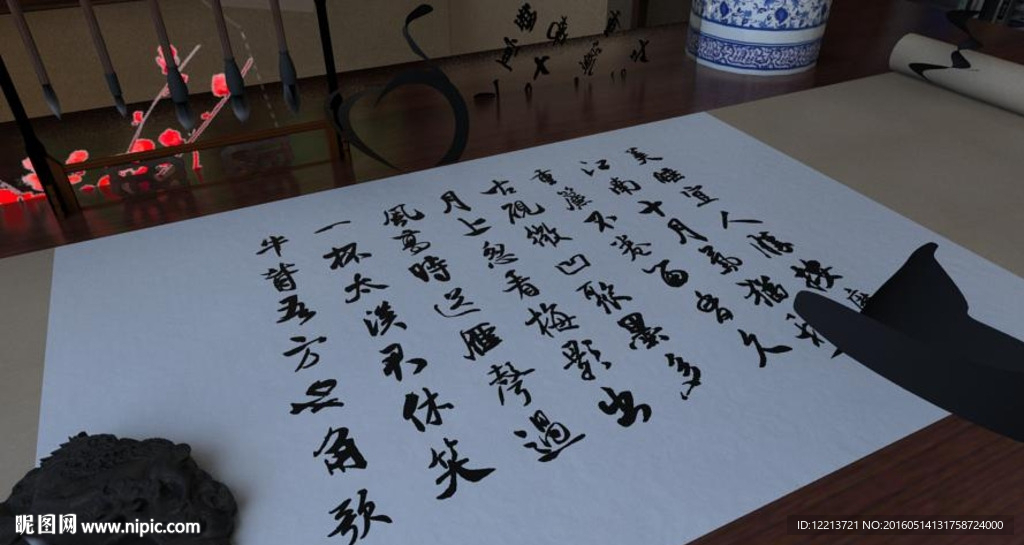 美睡宜人勝按摩
江南十月氣猶和
重簾不卷留香久
古硯微凹聚墨多
月上忽看梅影出
風高時送雁聲過
一杯太淡君休笑
牛背吾方扣角歌
昵图网 www.nipic.com
ID:12213721 NO:20160514131758724000